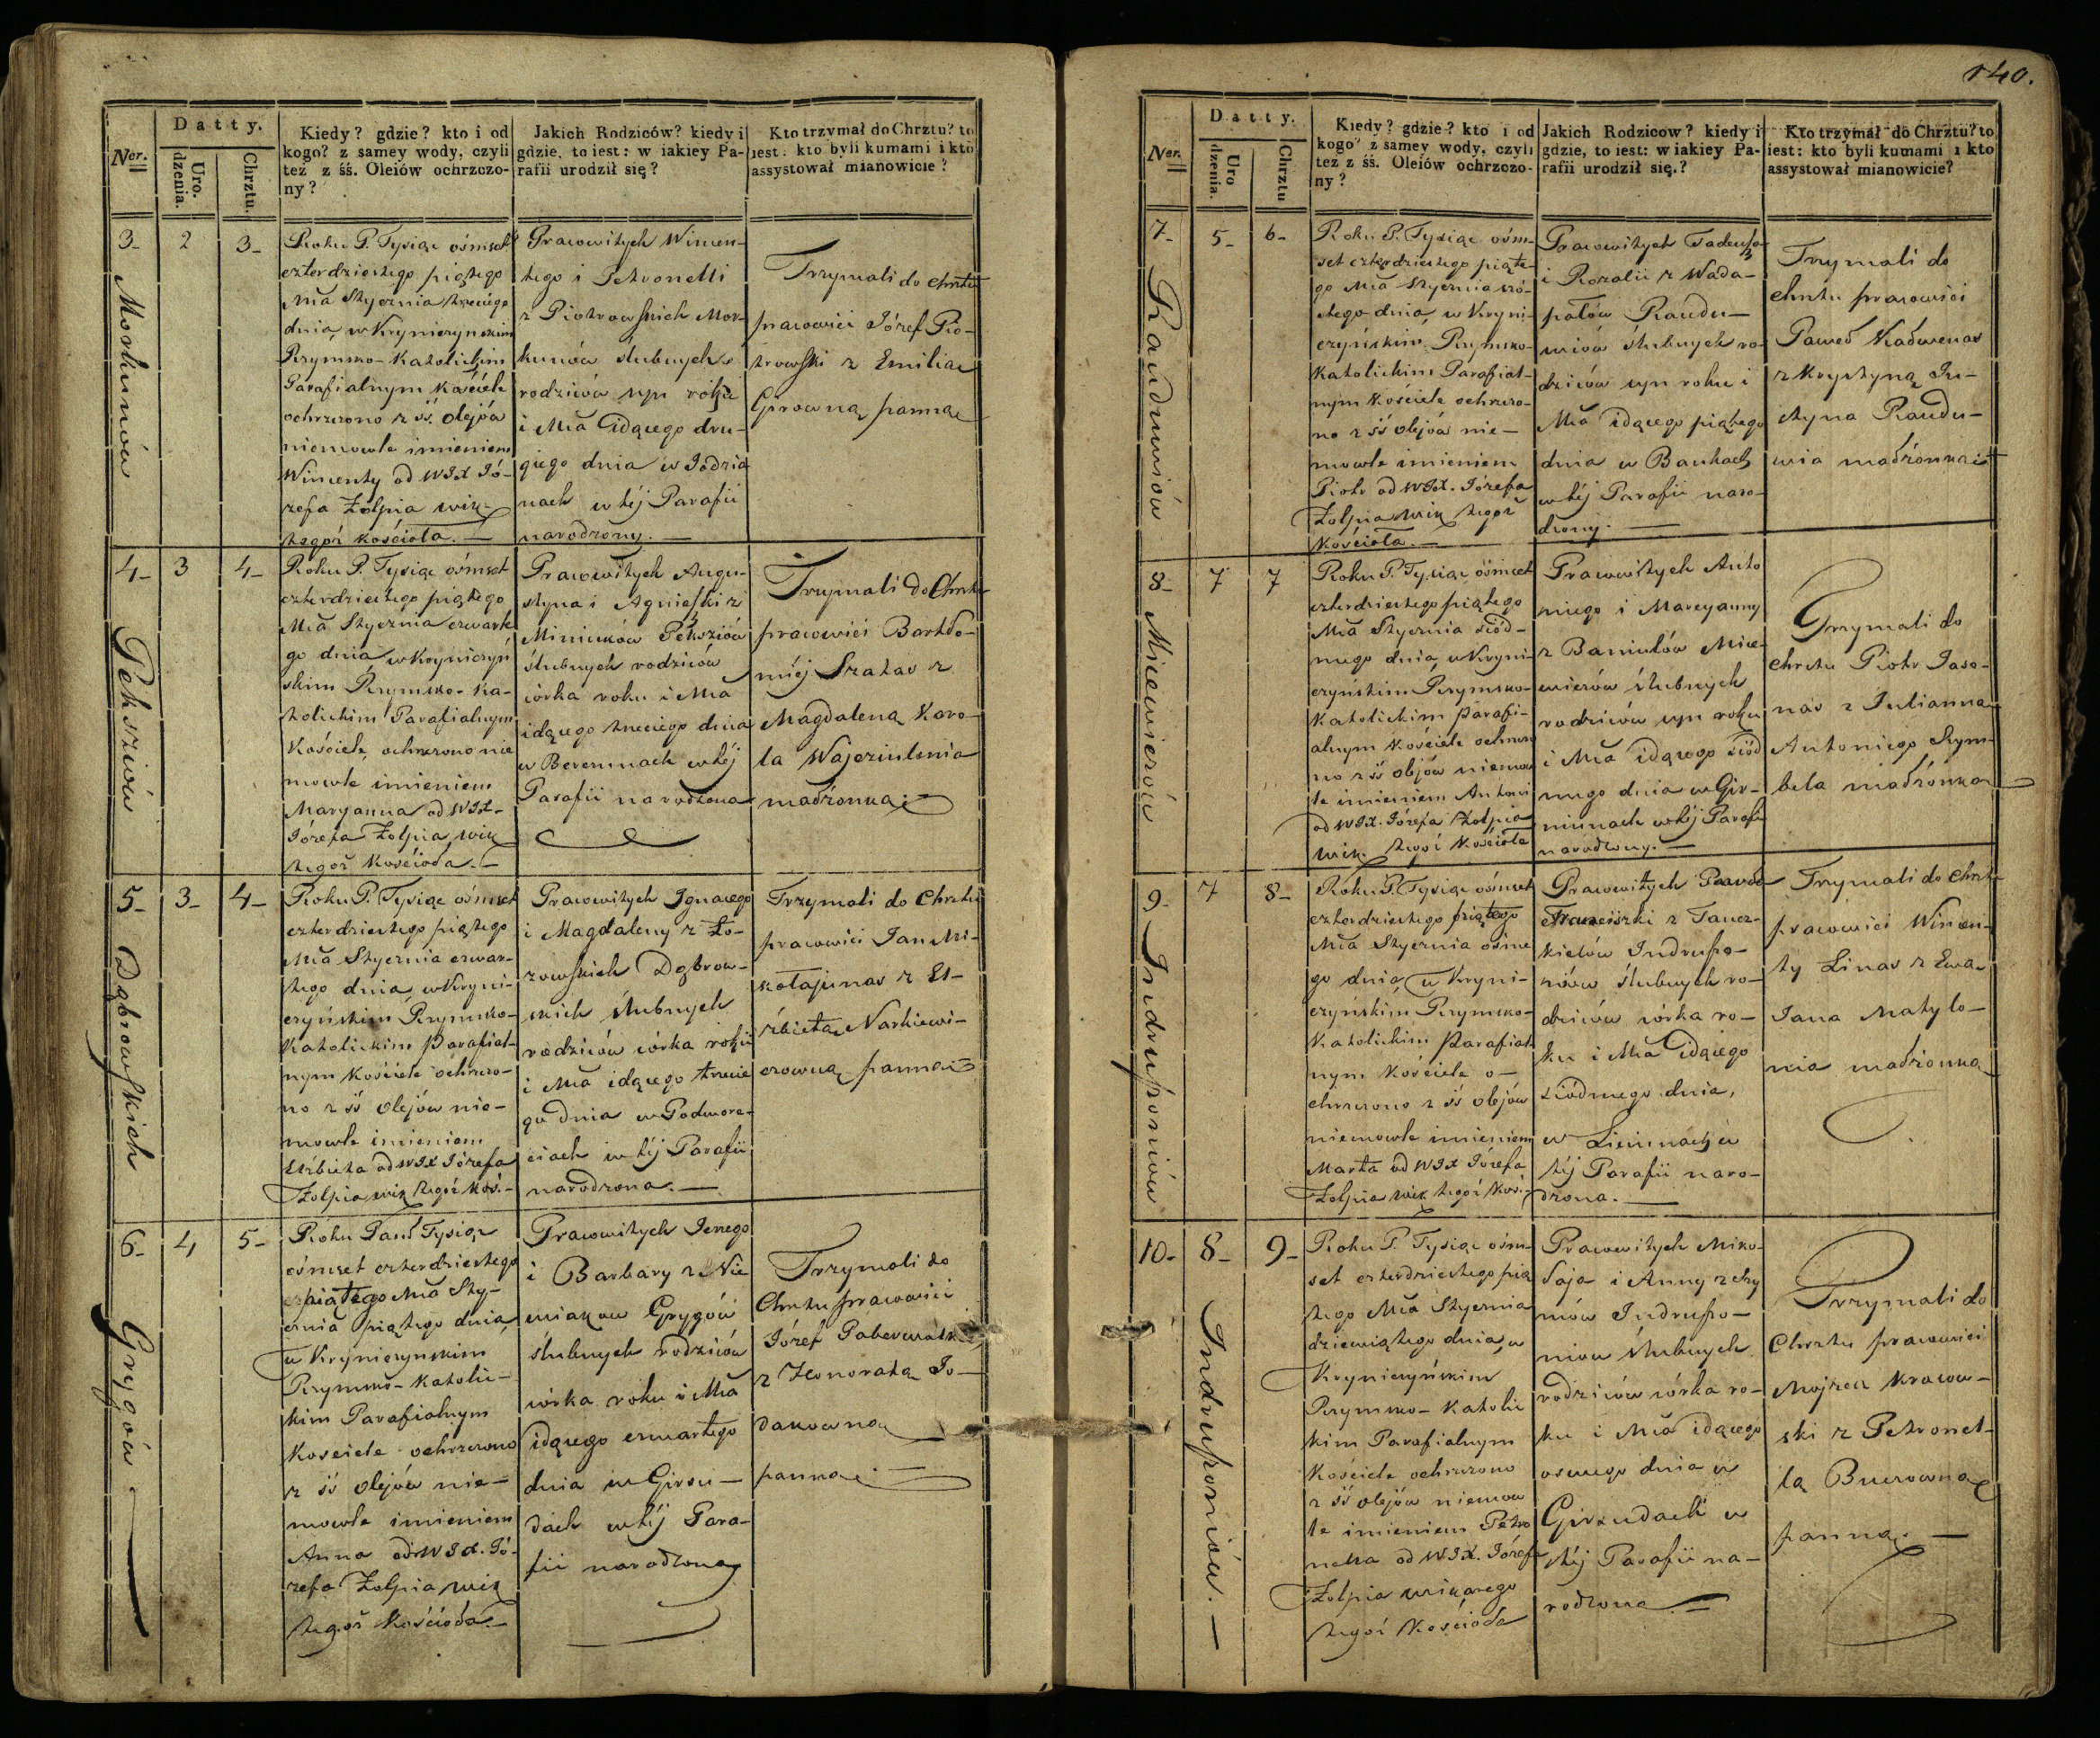 Ner.
Datty.
Uro.
dzenia.
Chrztu.
Kiedy? gdzie? kto i od
kogo? z samey wody, czyli
też z śś. Oleiów ochrzczo-
ny?
Jakich Rodziców? kiedy i
gdzie, to iest: w iakiey Pa-
rafii urodził się?
Kto trzymał do Chrztu? to
iest: kto byli kumami i kto
assystował mianowicie?
3-
Morkunów
2
3-
Roku P. Tysiąc ośmset
czterdziestego piątego
Mca Stycznia trzeciego
dnia w Kryniczynskim
Rzymsko-Katolickim
Parafialnym Kościele
ochrzczono z śś. olejów
niemowle imieniem
Wincenty od WJX Jó-
zefa Żołpia wik.
tegoż kościoła.-
Pracowitych Wincen-
tego i Petronelli
z Piotrowskich Mor-
kunów ślubnych
rodziców syn roku
i Mca idącego dru-
giego dnia w Jodzia
nach w téj Parafii
narodzony.-
Trzymali do Chrztu
pracowici Józef Pio-
trowski z Emilią
panną
4-
Pekszów
3
4-
Roku P. Tysiąc ośmset
czterdziestego piątego
Mca Stycznia czwarte
go dnia w Kryniczyń
skim Rzymsko-Ka-
tolickim Parafialnym
Kościele ochrzczono nie
mowle imieniem
Maryanna od WJX-
Józefa Żołpia wik
tegoż Kościoła.-
Pracowitych Augu-
styna i Agnieszki z
Miniuków
ślubnych rodziców
córka roku i Mca
idącego trzeciego dnia
w w téj
Parafii narodzona
Trzymali do Chrztu
pracowici Bartło-
miéj Szatas z
Magdaleną Karo-
la
małżonką
5-
Dąbrowskich
3-
4-
Roku P. Tysiąc ośmset
czterdziestego piątego
Mca Stycznia czwar-
tego dnia w Kryni-
czyńskim Rzymsko-
Katolickim Parafial-
nym Kościele ochrzczo-
no z śś olejów nie-
mowle imieniem
Elżbieta od WJX Józefa
Żołpia wik tegoż Koś.-
Pracowitych Ignacego
i Magdaleny z Ło-
zowskich Dąbrow-
skich ślubnych
rodziców córka roku
i Mca idącego trzecie
go dnia w Podwore-
ciach w téj Parafii
narodzona.-
Trzymali do Chrztu
pracowici Jan Mi-
kołajunas z El-
żbietą Narkiewi-
czowną panną
6-
Grygów
4
5-
Roku Pań. Tysiąc
ośmset czterdziestego
piątego Mca Sty-
cznia piątego dnia
w Kryniczynskim
Rzymsko-Katolic-
kim Parafialnym
Kosciele ochrzczono
z śś olejów nie-
mowle imieniem
Anna od WJX. Jó-
zefa Żołpia wik
tegoż Kościoła.-
Pracowitych Jerzego
i Barbary z Nie
Grygów
ślubnych rodziców
córka roku i Mca
idącego czwartego
dnia w Girsu-
dach w téj Para-
fii narodzona
Trzymali do
Chrztu pracowici
Józef
z Honoratą Jo-
danowną
panną.
140.
Ner.
Datty.
Uro
dzenia.
Chrztu
Kiedy? gdzie? kto i od
kogo? z samey wody, czyli
też z śś. Oleiów ochrzczo-
ny?
Jakich Rodziców? kiedy i
gdzie, to iest: w iakiey Pa-
rafii urodził się.?
Kto trzymał do Chrztu? to
iest: kto byli kumami i kto
assystował mianowicie?
7-
Raudumiów
5-
6-
Roku P. Tysiąc ośm-
set czterdziestego piąte-
go Mca Stycznia szó-
stego dnia w Kryni-
czyńskim Rzymsko-
Katolickim Parafial-
nym Kościele ochrzczo-
no z śś olejów nie-
mowle imieniem
Piotr od WJX. Józefa
Żołpia wik tegoż
Kościoła.-
Pracowitych Tadeusza
i Rozalii z Wada-
pałów Raudu-
miów ślubnych ro-
dziców syn roku i
Mca idącego piątego
dnia w Baukach
w téj Parafii naro-
dzony.-
Trzymali do
chrztu pracowici
Paweł Kadwenas
z Krystyną Ju-
styna Raudu-
mia małżonką
8-
Micewiczów
7
7
Roku P. Tysiąc ośmset
czterdziestego piątego
Mca Stycznia siód-
mego dnia w Kryni-
czyńskim Rzymsko-
Katolickim Parafi-
alnym Kościele ochrzczo
no z śś olejów niemow
le imieniem Antoni
od WJX. Józefa Żołpia
wik. tegoż Kościoła
Pracowitych Anto
niego i Maryanny
z Baniulów Mice-
wiczów ślubnych
rodziców syn roku
i Mca idącego siód
mego dnia w Gir-
niunach w téj Parafii
narodzony.-
Trzymali do
chrztu Piotr Jaso-
nas z Julianną
Antoniego Szym-
bela małżonką
9-
Indruponiów
7
8-
Roku P. Tysiąc ośmset
czterdziestego piątego
Mca Stycznia ósme
go dnia w Kryni-
czyńskim Rzymsko-
Katolickim Parafial
nym Kościele o-
chrzczono z śś olejów
niemowle imieniem
Marta od WJX Józefa
Żołpia wik tegoż Koś.-
Pracowitych Pawła
Franciszki z Tancz-
kielów Indrupo-
niów ślubnych ro-
dziców córka ro-
ku i Mca idącego
siódmego dnia,
w w
téj Parafii naro-
dzona.-
Trzymali do Chrztu
pracowici Wincen-
ty Linas z Ewą
Jana Matylo-
nia małżonką
10-
Indruponiów.-
8-
9-
Roku P. Tysiąc ośm-
set czterdziestego pią
tego Mca Stycznia
dziewiątego dnia w
Kryniczyńskim
Rzymsko-Katolic
kim Parafialnym
Kościele ochrzczono
z śś olejów niemow
le imieniem Petro
nella od WJX. Józefa
Żołpia wikarego
tegoż Kościoła
Pracowitych Miko-
łaja i Anny z Szy
mów Indrupo-
niów ślubnych
rodziców córka ro-
ku i Mca idącego
osmego dnia w
Girsudach w
téj Parafii na-
rodzona.-
Trzymali do
Chrztu pracowici
Mojżesz Kraców-
ski z Petronel-
lą
panną.-